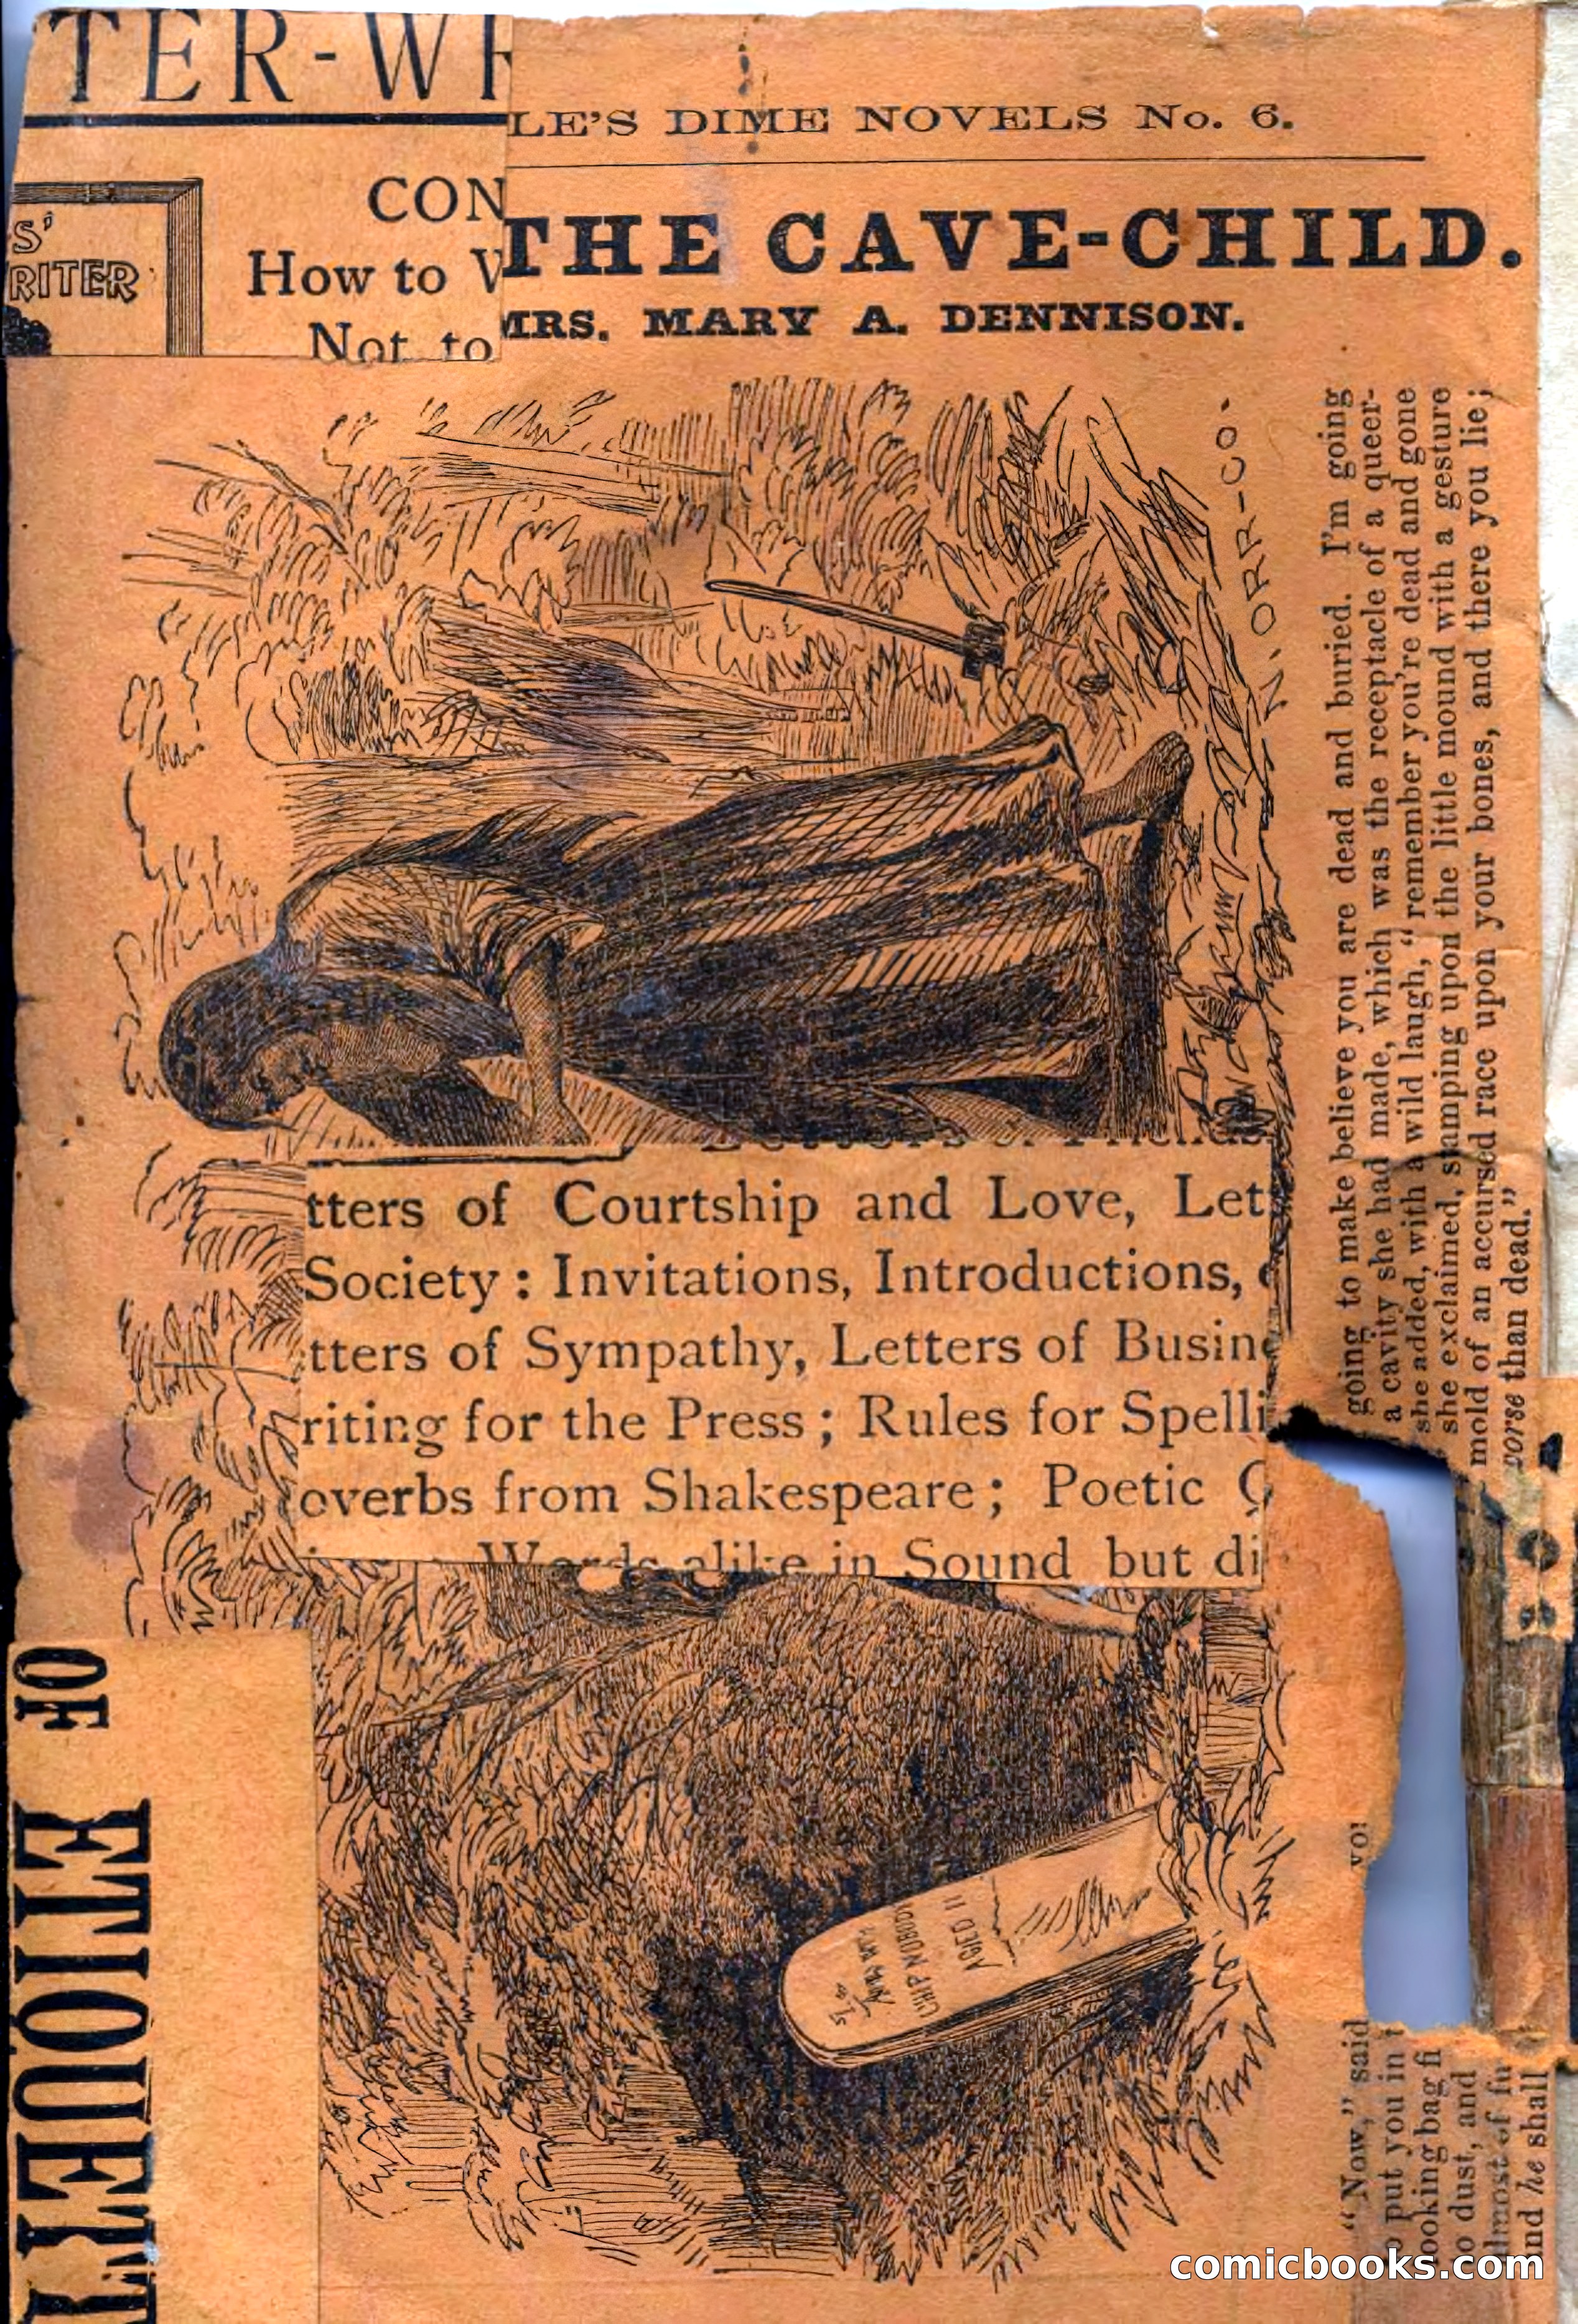 TER-WR
LE'S DIME NOVELS No. 6.
S'
RITER
CON
How to W
Not to
THE CAVE-CHILD.
MRS. MARY A. DENNISON.
N. ORR-CO.
tters of Courtship and Love, Let
Society: Invitations, Introductions,
tters of Sympathy, Letters of Busine
riting for the Press; Rules for Spelli
overbs from Shakespeare; Poetic
Words alike in Sound but di
OF
ETIQUETT
CHIP NOBODY
AGED 11
“Now,” said going to make believe you are dead and buried. I'm going
o put you in t a cavity she had made, which was the receptacle of a queer-
ooking bag fi she added, with a wild laugh, “remember you're dead and gone
o dust, and she exclaimed, stamping upon the little mound with a gesture
lmost of fu mold of an accursed race upon your bones, and there you lie;
nd he shall worse than dead.”
comicbooks.com